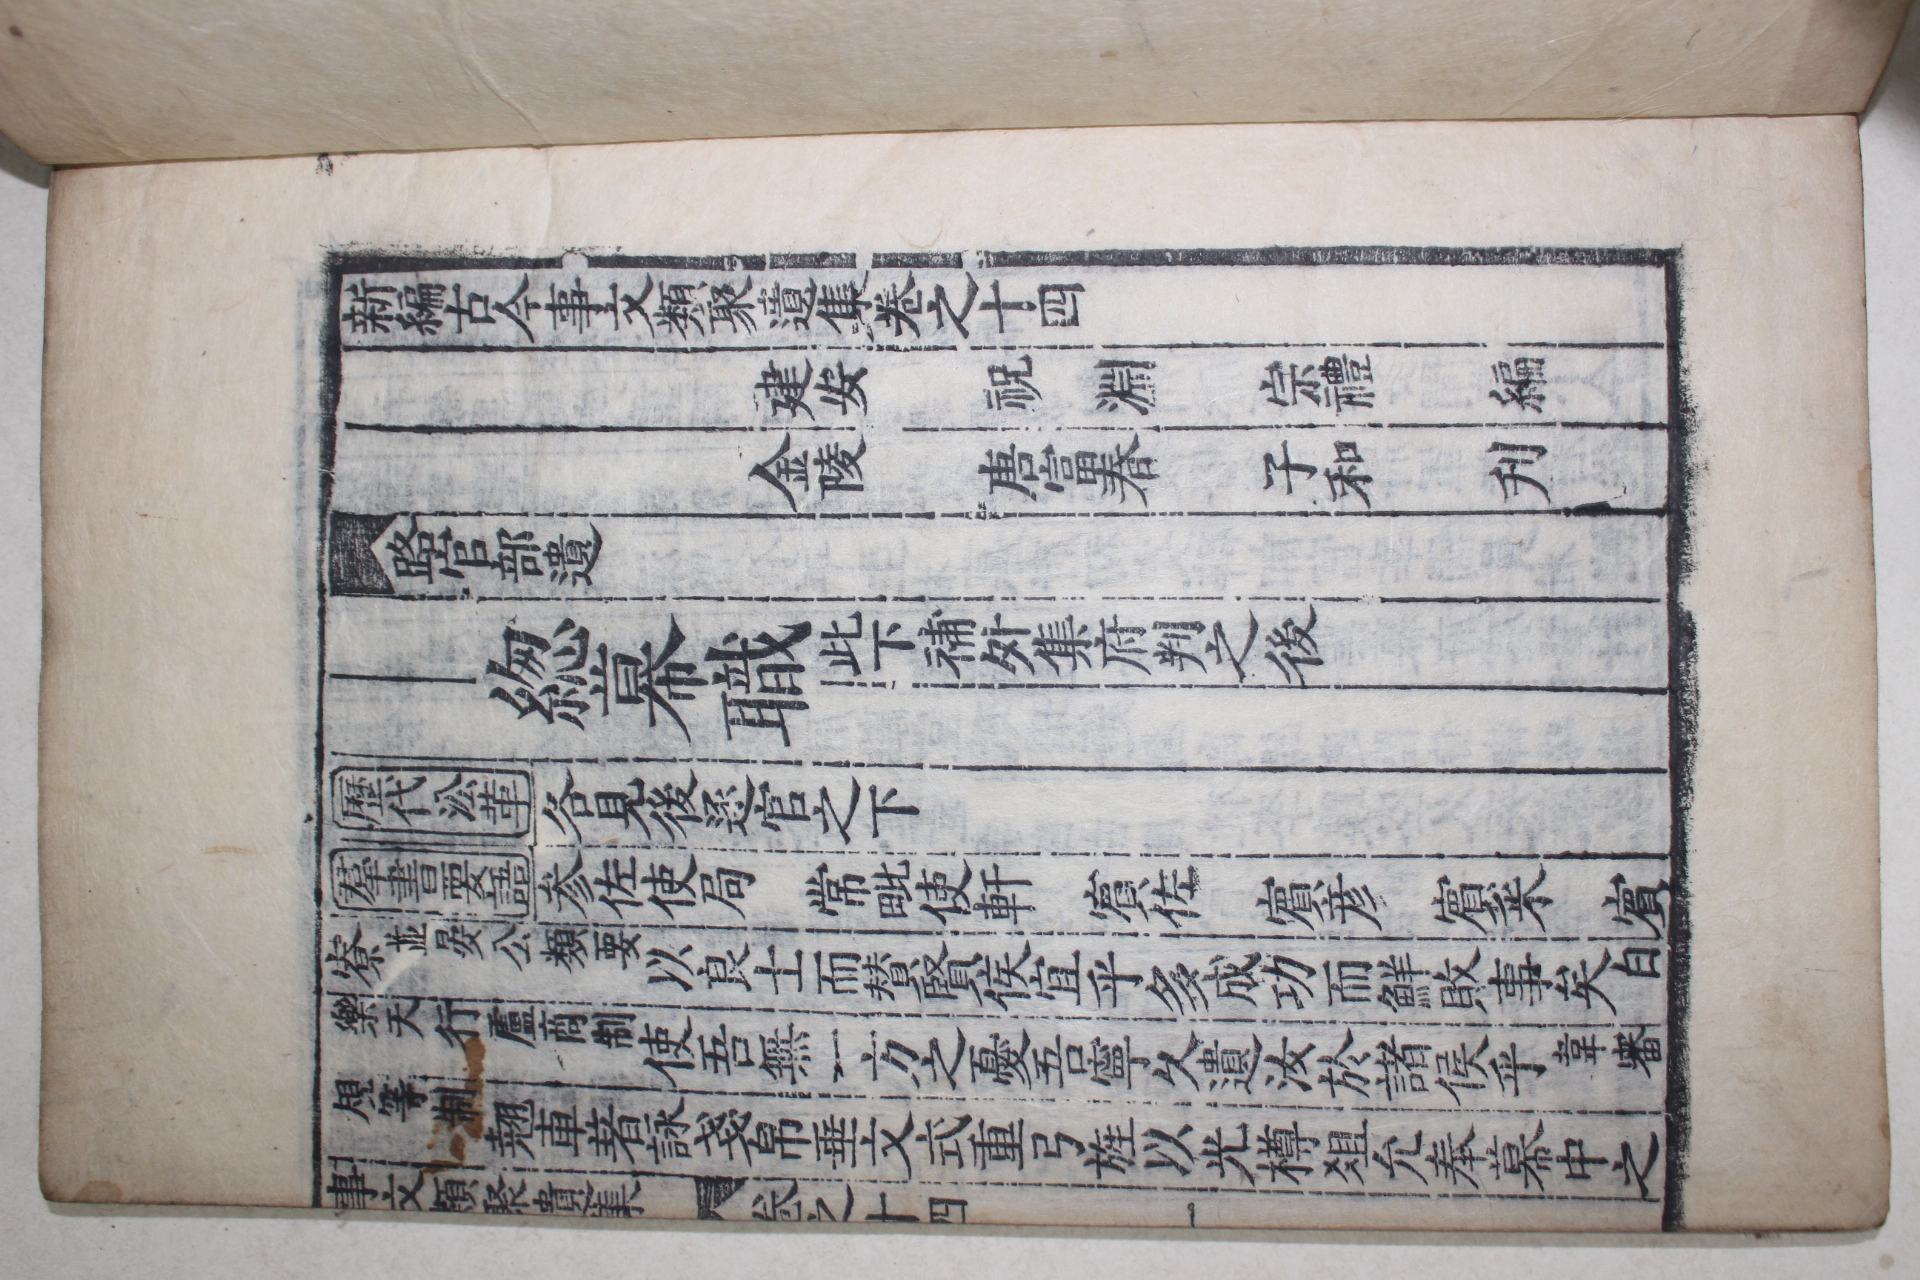 新編古今事文類聚遺集卷之十四
建安 祝 淵 宗禮 編
金陵 唐富春 子和 刊
路官部遺
緫幕職 此下補外集府判之後
歷代沿革 各見後逐官之下
羣書要語 参佐使局 常毗使軒 賓佐 賓彦 賓寀 賓
寮 並晏公類要 以良士而賛賢侯宜乎多成功而鮮敗事矣 白
樂天行盧商制 使吾無一方之憂吾寧久遺汝於諸侯乎 韋審
規等制 翹車著詠戔帛垂文式重弓旌以光樽俎允奉幕中之
事文類聚遺集 卷之十四 一